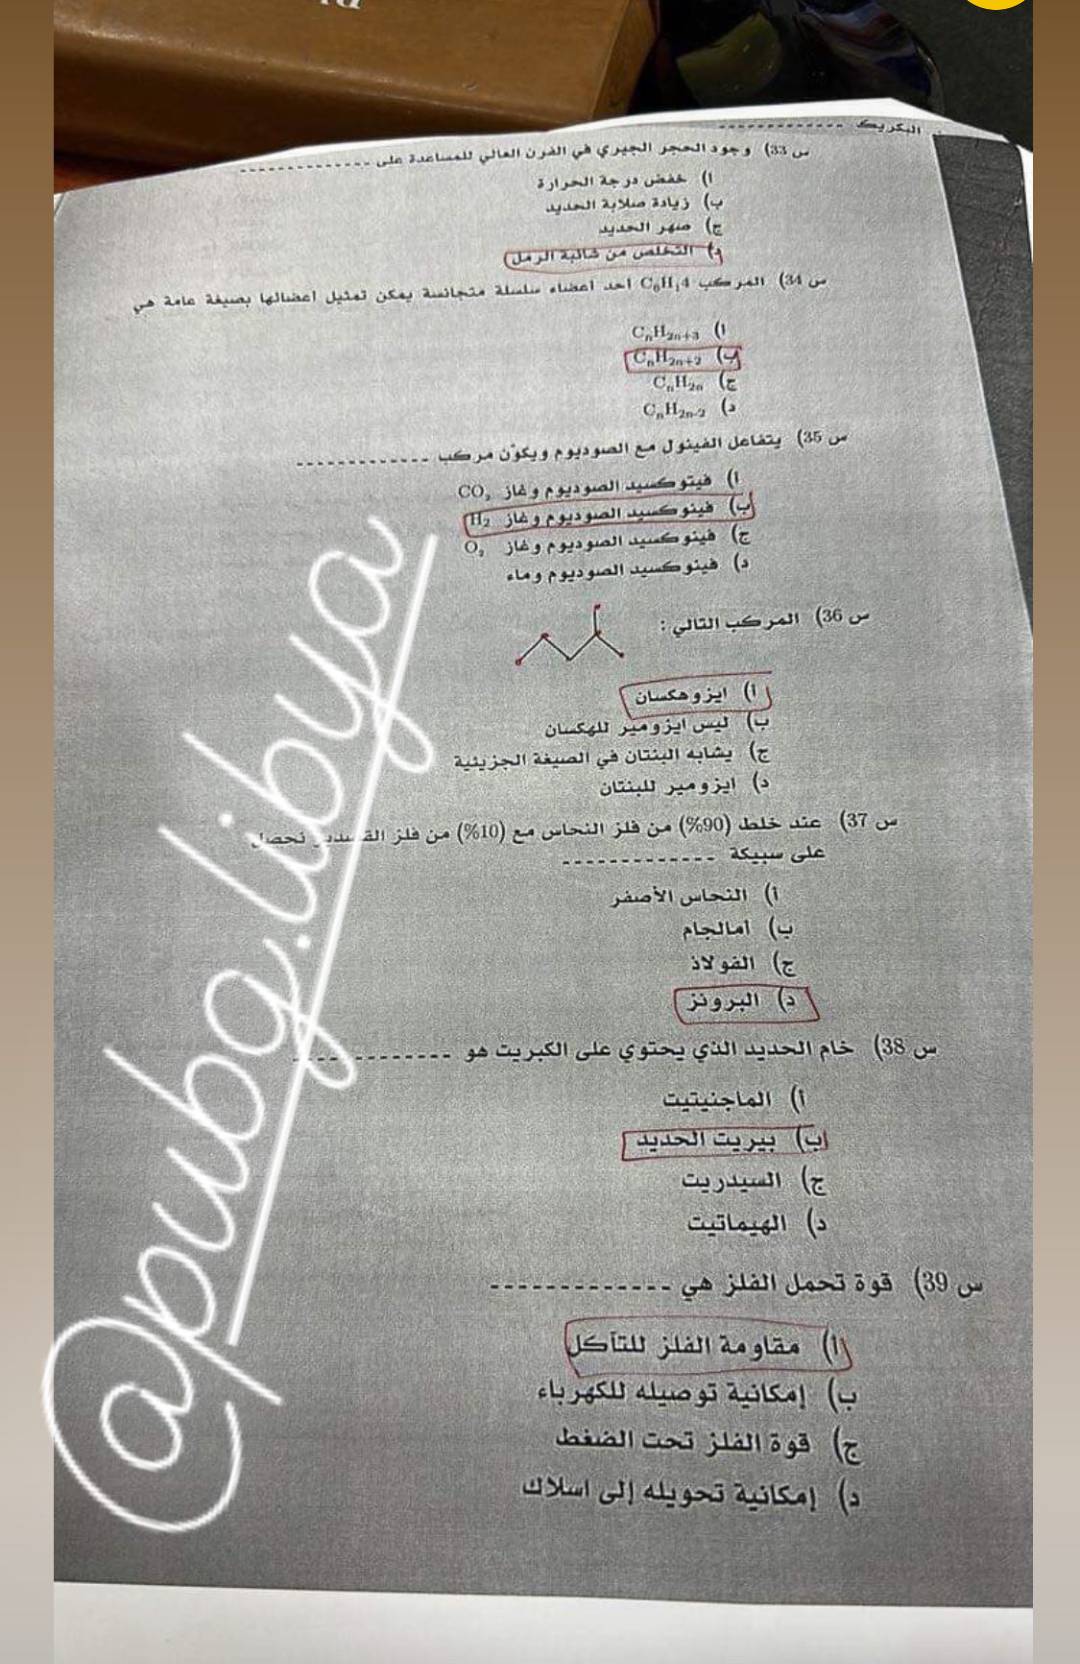 البكريك ------------
س 33) وجود الحجر الجيري في الفرن العالي للمساعدة على -------------
ا) خفض درجة الحرارة
ب) زيادة صلابة الحديد
ج) صهر الحديد
د) التخلص من شائبة الرمل
س 34) المركب C₆H₁4 احد اعضاء سلسلة متجانسة يمكن تمثيل اعضائها بصيغة عامة هي
ا) CₙH₂ₙ₊₃
ب) CₙH₂ₙ₊₂
ج) CₙH₂ₙ
د) CₙH₂ₙ₋₂
س 35) يتفاعل الفينول مع الصوديوم ويكوّن مركب -------------
ا) فيتوكسيد الصوديوم وغاز CO₂
ب) فينوكسيد الصوديوم وغاز H₂
ج) فينوكسيد الصوديوم وغاز O₂
د) فينوكسيد الصوديوم وماء
س 36) المركب التالي :
ا) ايزوهكسان
ب) ليس ايزومير للهكسان
ج) يشابه البنتان في الصيغة الجزيئية
د) ايزومير للبنتان
س 37) عند خلط (90%) من فلز النحاس مع (10%) من فلز القصدير نحصل
على سبيكة -------------
أ) النحاس الأصفر
ب) أمالجام
ج) الفولاذ
د) البرونز
س 38) خام الحديد الذي يحتوي على الكبريت هو -------------
أ) الماجنيتيت
ب) بيريت الحديد
ج) السيدريت
د) الهيماتيت
س 39) قوة تحمل الفلز هي -------------
ا) مقاومة الفلز للتآكل
ب) إمكانية توصيله للكهرباء
ج) قوة الفلز تحت الضغط
د) إمكانية تحويله إلى اسلاك
@pubg.libya